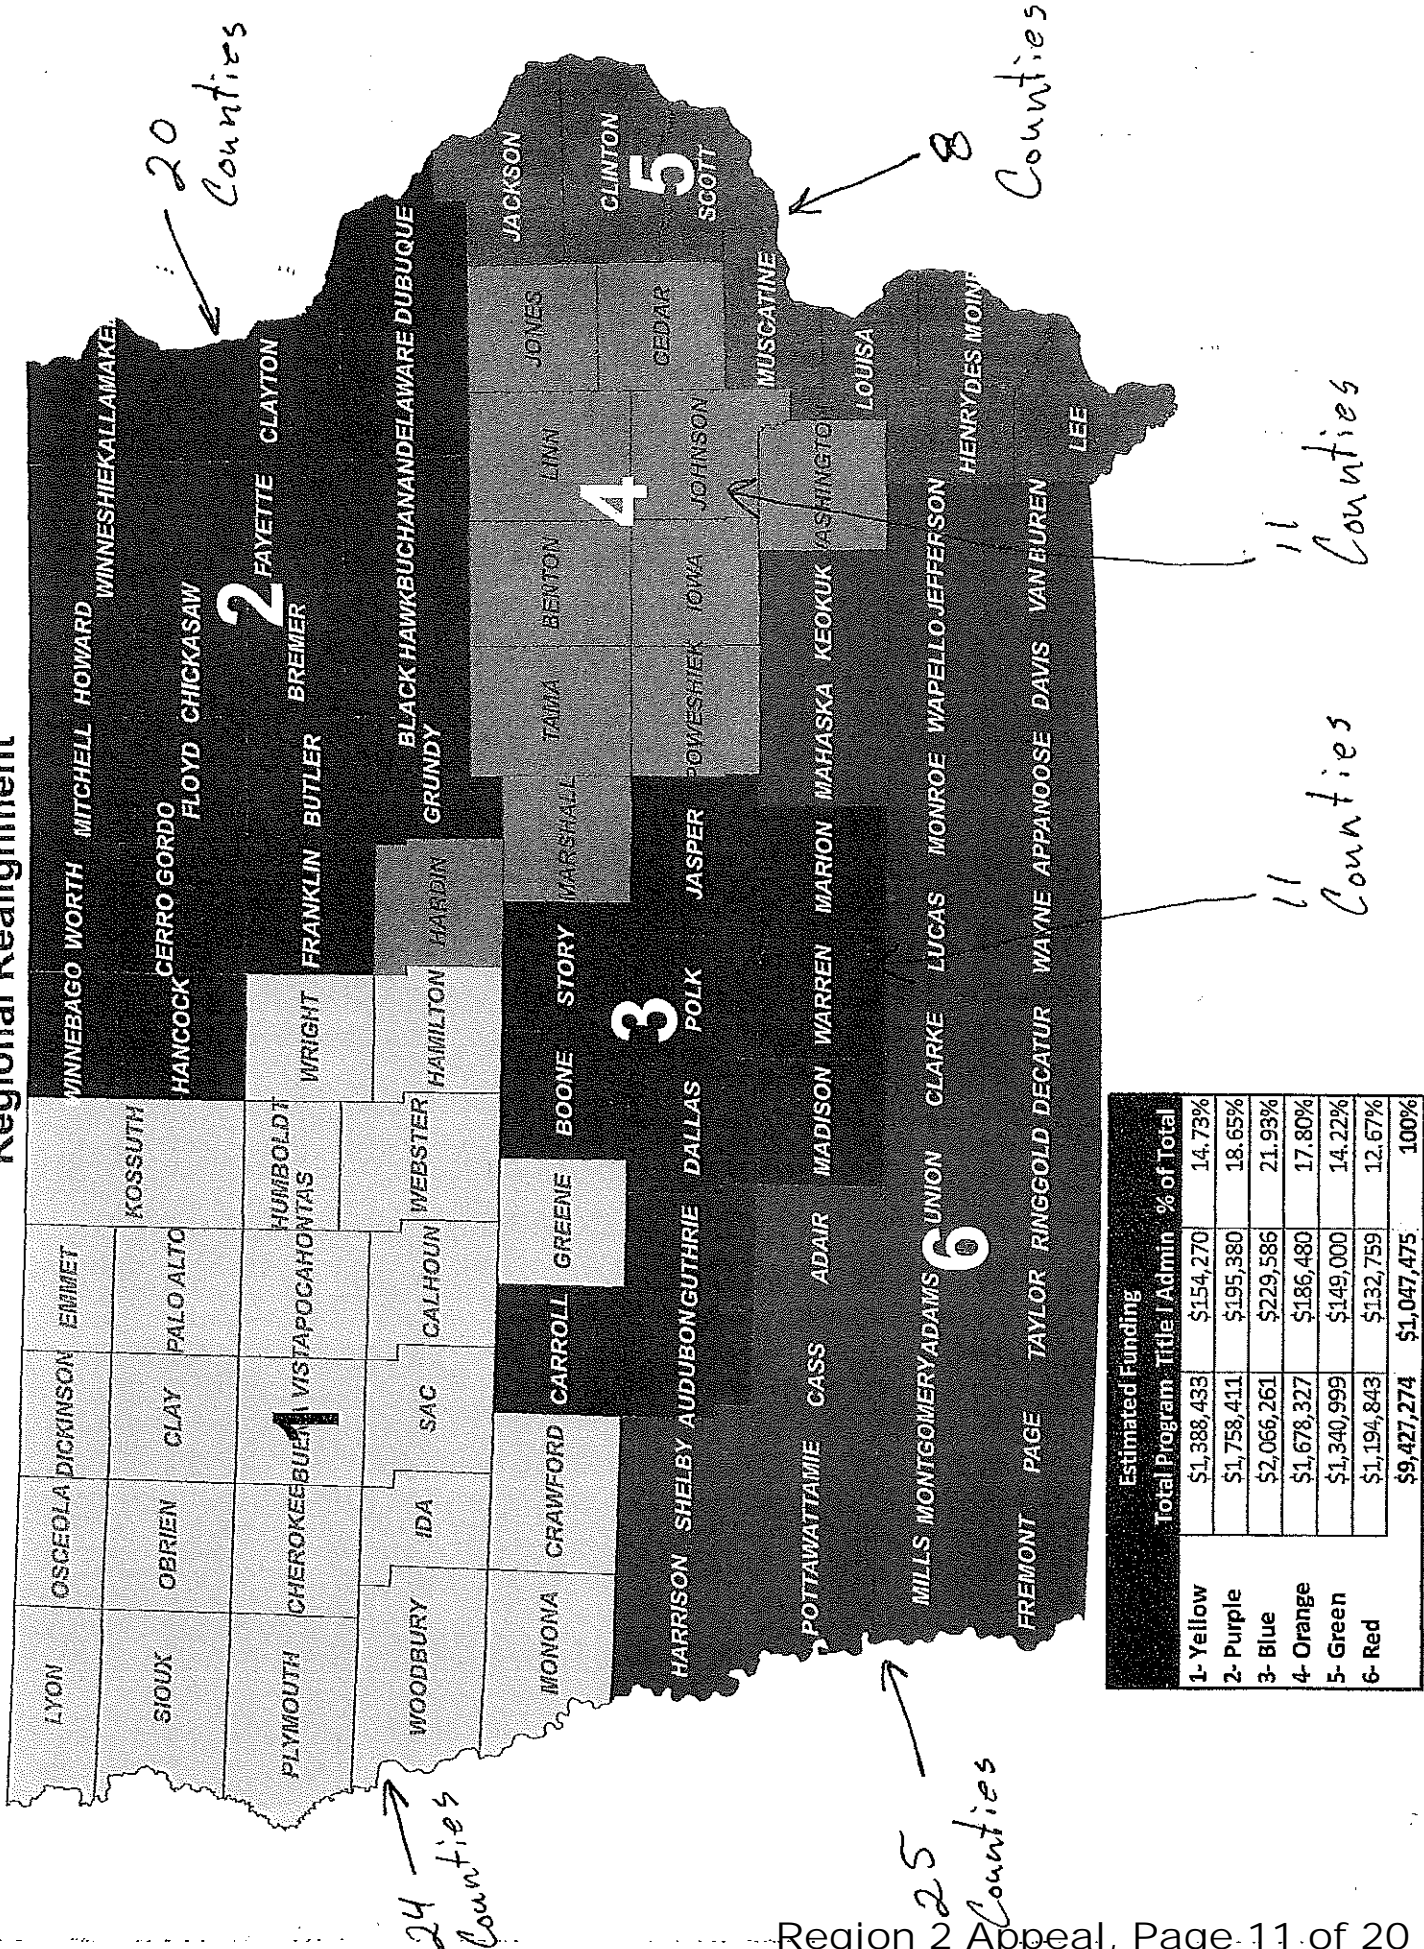 Regional Realignment
LYON OSCEOLA DICKINSON EMMET
KOSSUTH
WINNEBAGO WORTH MITCHELL HOWARD
WINNESHIEK ALLAMAKE
SIOUX OBRIEN CLAY PALO ALTO
HANCOCK CERRO GORDO
FLOYD CHICKASAW
2
FAYETTE CLAYTON
PLYMOUTH CHEROKEE VISTA POCAHONTAS
1
HUMBOLDT
WRIGHT
FRANKLIN BUTLER
BREMER
WOODBURY IDA SAC CALHOUN WEBSTER HAMILTON HARDIN
GRUNDY
BLACK HAWK BUCHANAN DELAWARE DUBUQUE
MONONA CRAWFORD CARROLL GREENE BOONE STORY MARSHALL TAMA BENTON LINN JONES JACKSON
3
4
5
CLINTON
SCOTT
HARRISON SHELBY AUDUBON GUTHRIE DALLAS POLK JASPER POWESHIEK IOWA JOHNSON CEDAR
MUSCATINE
POTTAWATTAMIE CASS ADAIR MADISON WARREN MARION MAHASKA KEOKUK
LOUISA
MILLS MONTGOMERY ADAMS UNION CLARKE LUCAS MONROE WAPELLO JEFFERSON
HENRY DES MOIN
6
FREMONT PAGE TAYLOR RINGGOLD DECATUR WAYNE APPANOOSE DAVIS VAN BUREN
LEE
24
Counties
20
Counties
8
Counties
25
Counties
11
Counties
11
Counties
Estimated Funding
Total Program Title I Admin % of Total
1- Yellow $1,388,433 $154,270 14.73%
2- Purple $1,758,411 $195,380 18.65%
3- Blue $2,066,261 $229,586 21.93%
4- Orange $1,678,327 $186,480 17.80%
5- Green $1,340,999 $149,000 14.22%
6- Red $1,194,843 $132,759 12.67%
$9,427,274 $1,047,475 100%
Region 2 Appeal, Page 11 of 20